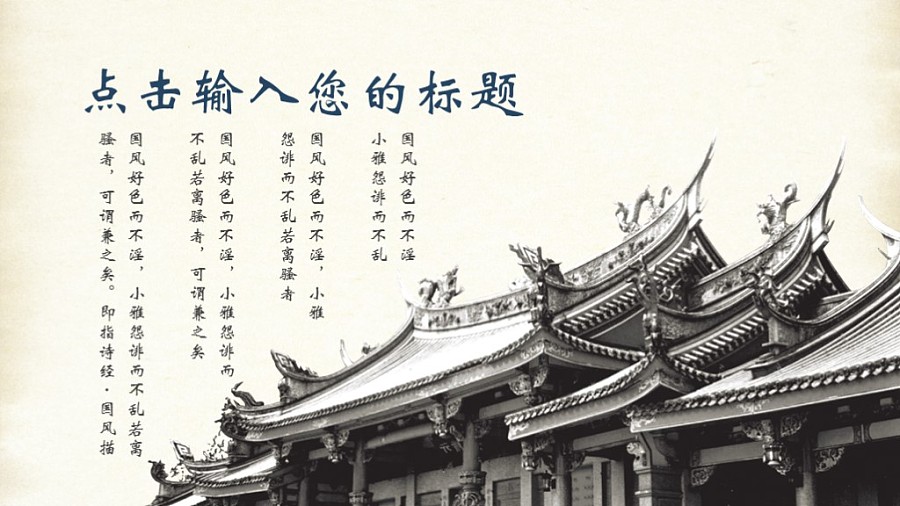 点击输入您的标题
国风好色而不淫
小雅怨诽而不乱
国风好色而不淫，小雅
怨诽而不乱若离骚者
国风好色而不淫，小雅怨诽而
不乱若离骚者，可谓兼之矣
国风好色而不淫，小雅怨诽而不乱若离
骚者，可谓兼之矣。即指诗经·国风描